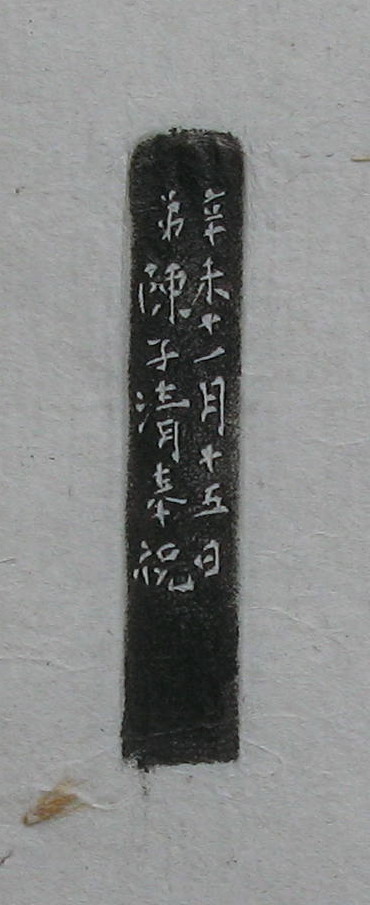 辛未十一月十五日
弟陳子清奉祝